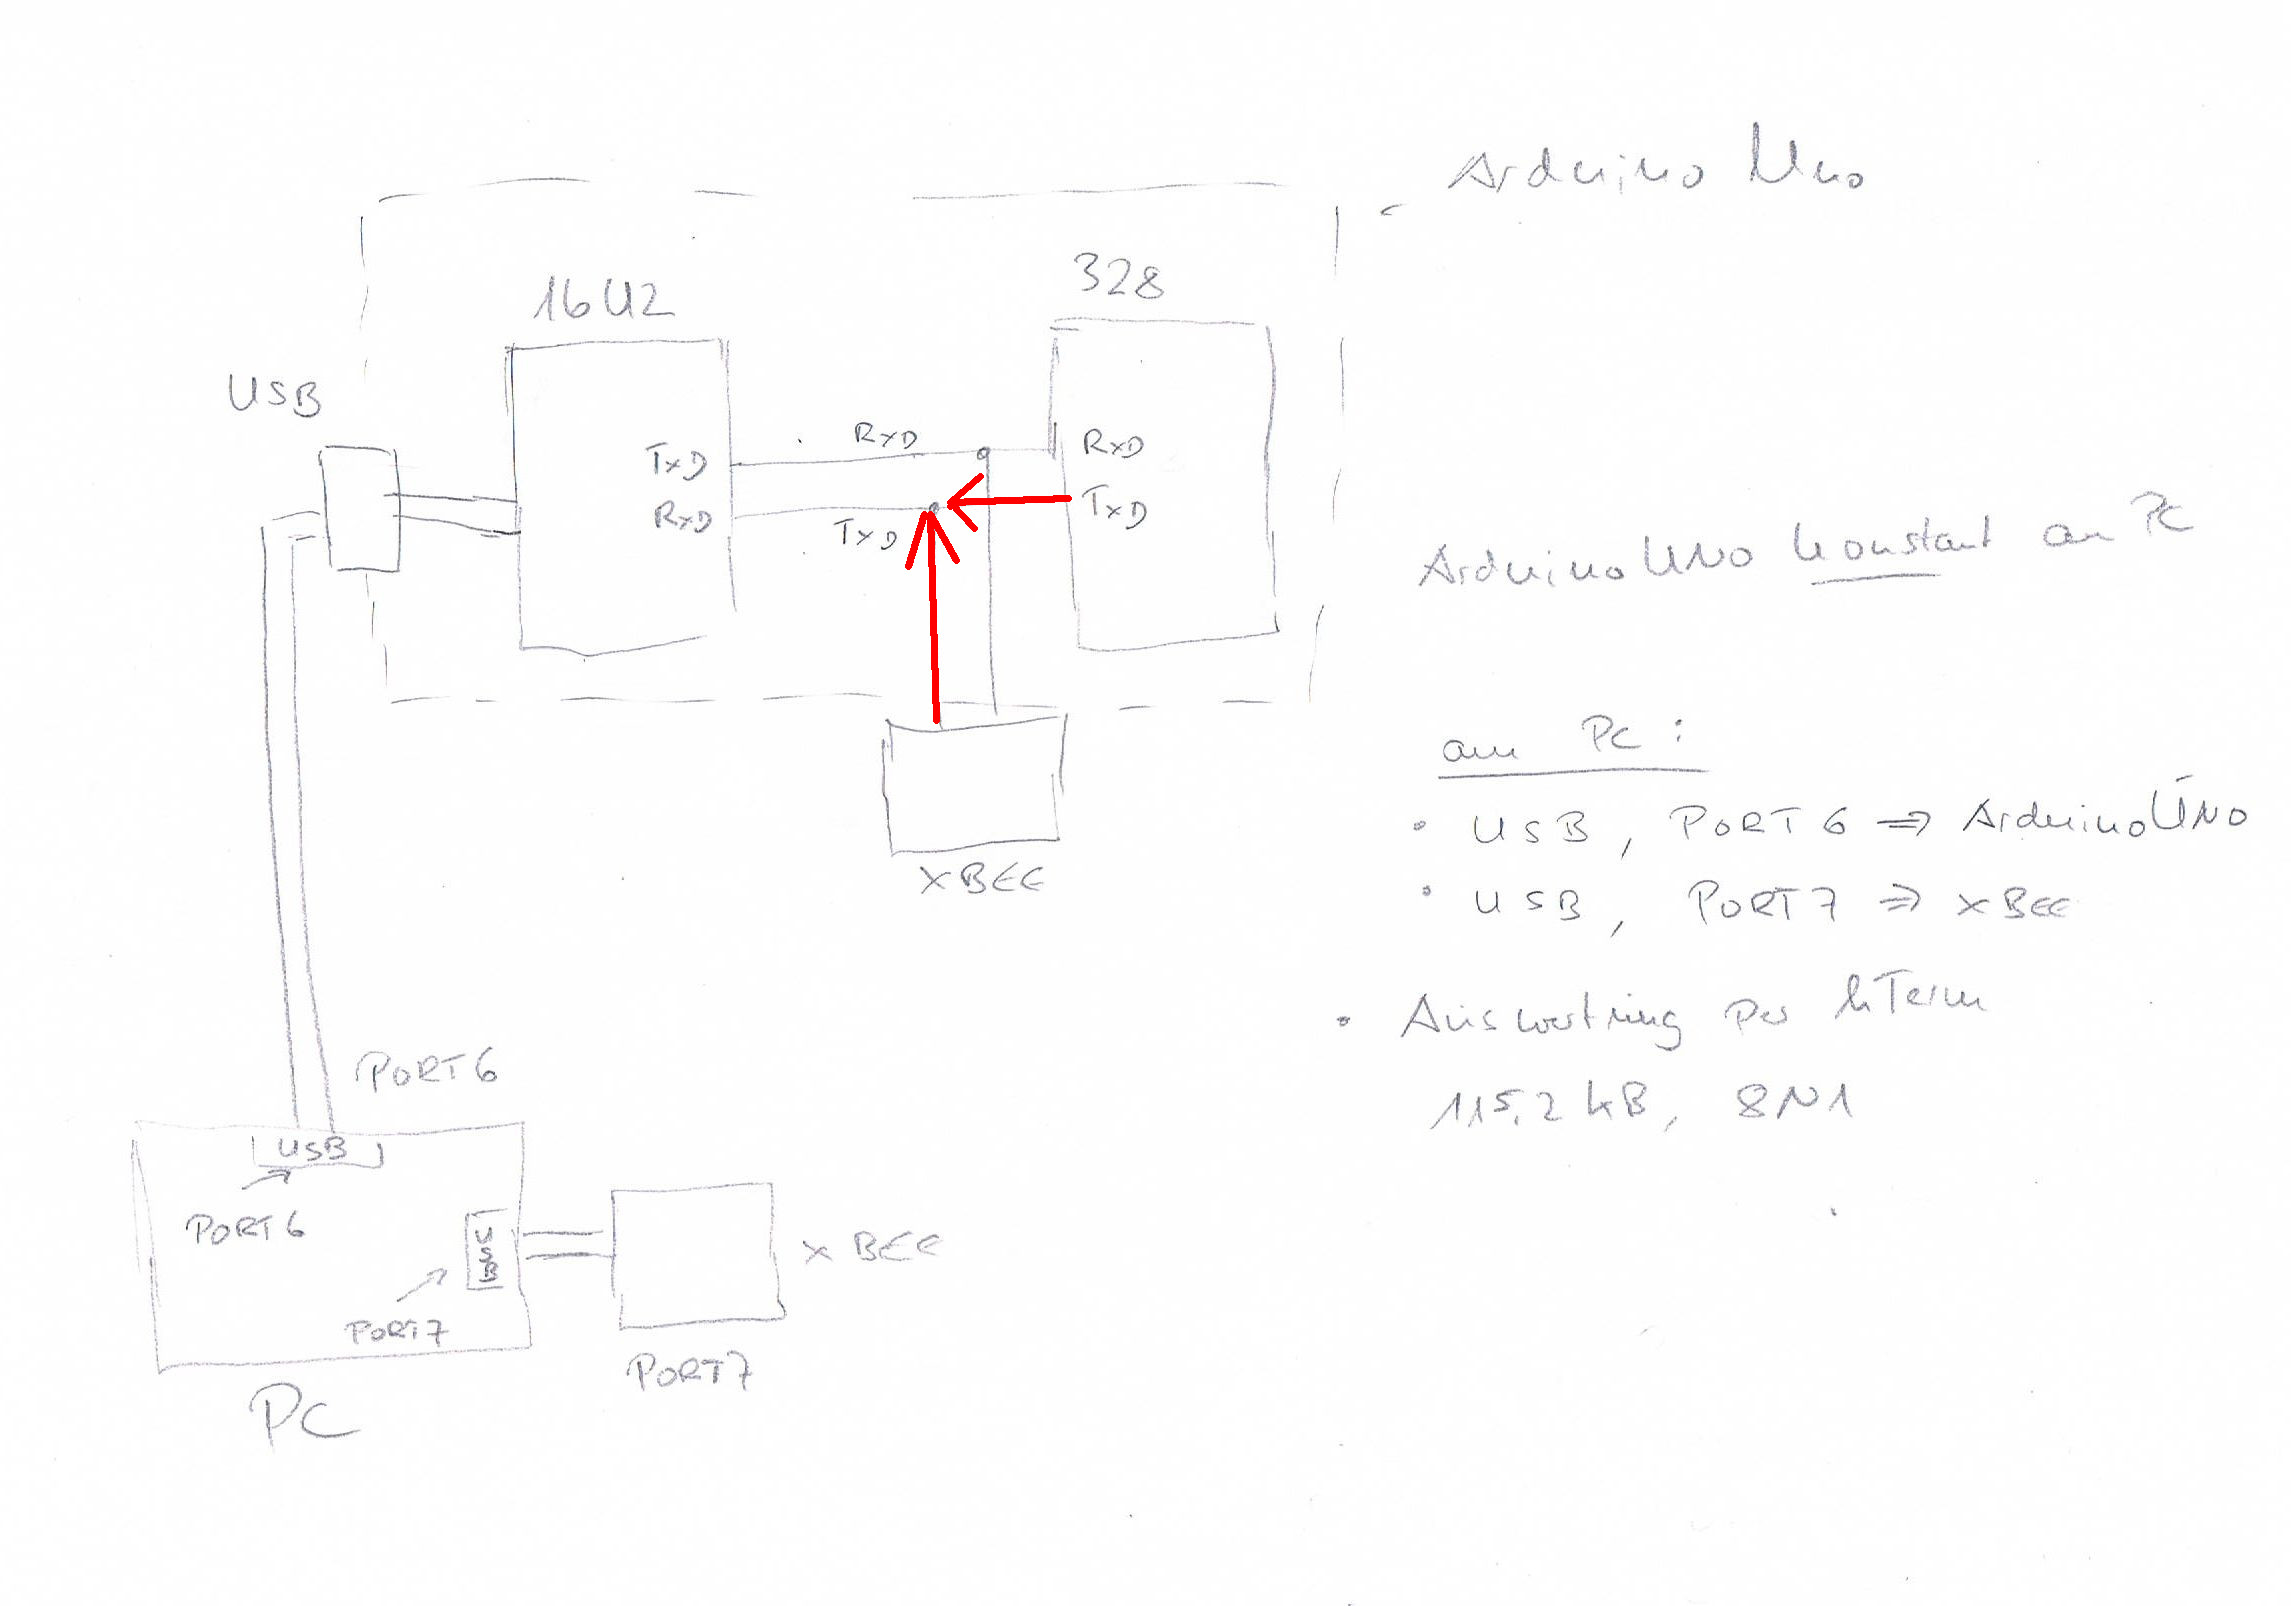 Arduino Uno
328
16U2
USB
RxD
RxD
TxD
TxD
RxD
TxD
Arduino UNO konstant an PC
am PC:
• USB, PORT 6 => Arduino UNO
XBEE
• USB, PORT 7 => XBEE
• Auswertung per hTerm
PORT6
115,2 kB, 8N1
USB
PORT6
USB
XBEE
PORT7
PORT7
PC